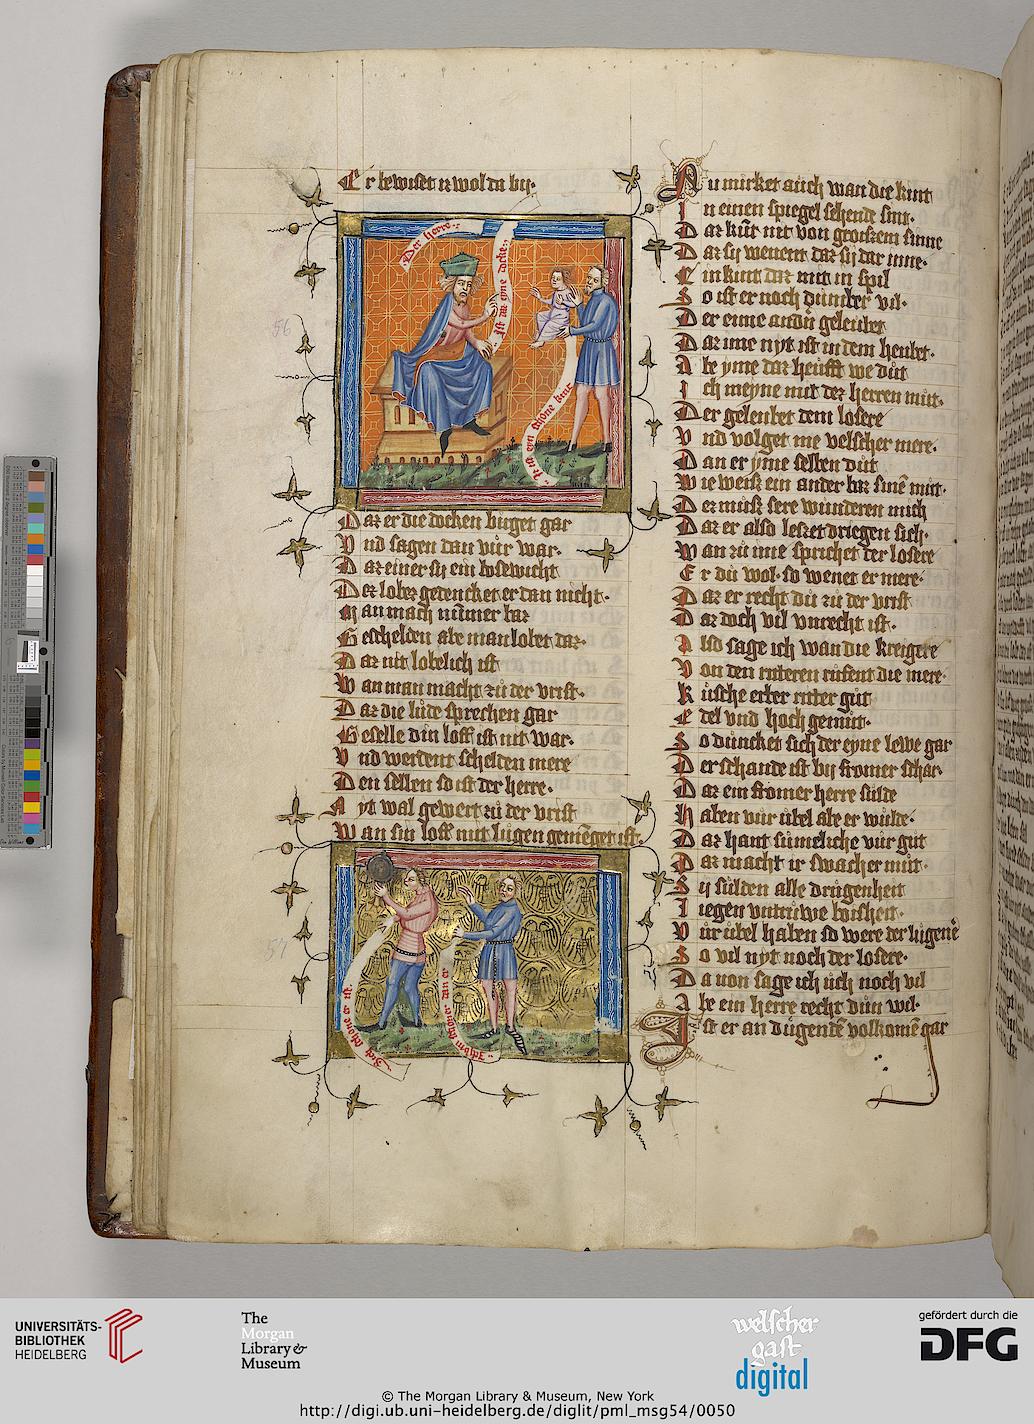 Er bewiset u wol da by.
Der herre.
Ist dz eyne docke.
Is ist eyn schone kint
56
Daz er die docken birget gar
Vnd sagen dan vur war.
Daz einer sy ein bosewicht
Der lober gedencket er dan nicht.
Man mach nummer baz
Geschelden abe man lobet daz.
Daz nit lobelich ist
Wan man macht zu der vrist.
Daz die lude sprechen gar
Geselle din loff ist nit war.
Vnd werdent schelden mere
Den sellen so ist der herre.
Nyt wal gewert zu der vrist
Wan sin loff mit lugen gemeget ist.
57
Sich schone er ist
Ichbin schoner dan er
Nu mirket auch wan die kint
In einen spiegel sehende sint.
Daz kumt nit von groiszem sinne
Daz sy wenent daz sy dar inne.
Ein kint daz mit in spil
So ist er noch dumber vil.
Der eime andn geleubet
Daz ime nyt ist in dem heubet.
Abe yme daz heufft we dut
Ich meyne mit dez herren mut.
Der geleubet dem losere
Vnd volget me velscher mere.
Dan er yme selben dut
Wie weisz ein ander baz sine mut.
Dez musz sere wunderen mich
Daz er also leszet driegen sich.
Wan zu ime sprichet der losere
Er du wol. so wenet er mere.
Daz er recht du zu der vrist
Daz doch vil vnrecht ist.
Also sage ich wan die kreigere
Von den ritteren rufent die mere.
Kusche erber ritter gut
Edel vnd hoch gemut.
So duncket sich der eyne lewe gar
Der schande ist by fromer schar.
Daz ein fromer herre sulde
Haben vur ubel abe er wulde.
Daz hant sumeliche vur gut
Daz macht ir swacher mut.
Sy sulden alle drugenheit
Liegen vntruwe boisheit.
Vur ubel haben so were der lugene
So vil nyt noch der losere.
Da von sage ich uch noch vil
Abe ein herre recht dun wil.
Ist er an dugende volkome gar
UNIVERSITÄTS-
BIBLIOTHEK
HEIDELBERG
The
Morgan
Library &
Museum
welscher
gast
digital
gefördert durch die
DFG
© The Morgan Library & Museum, New York
http://digi.ub.uni-heidelberg.de/diglit/pml_msg54/0050